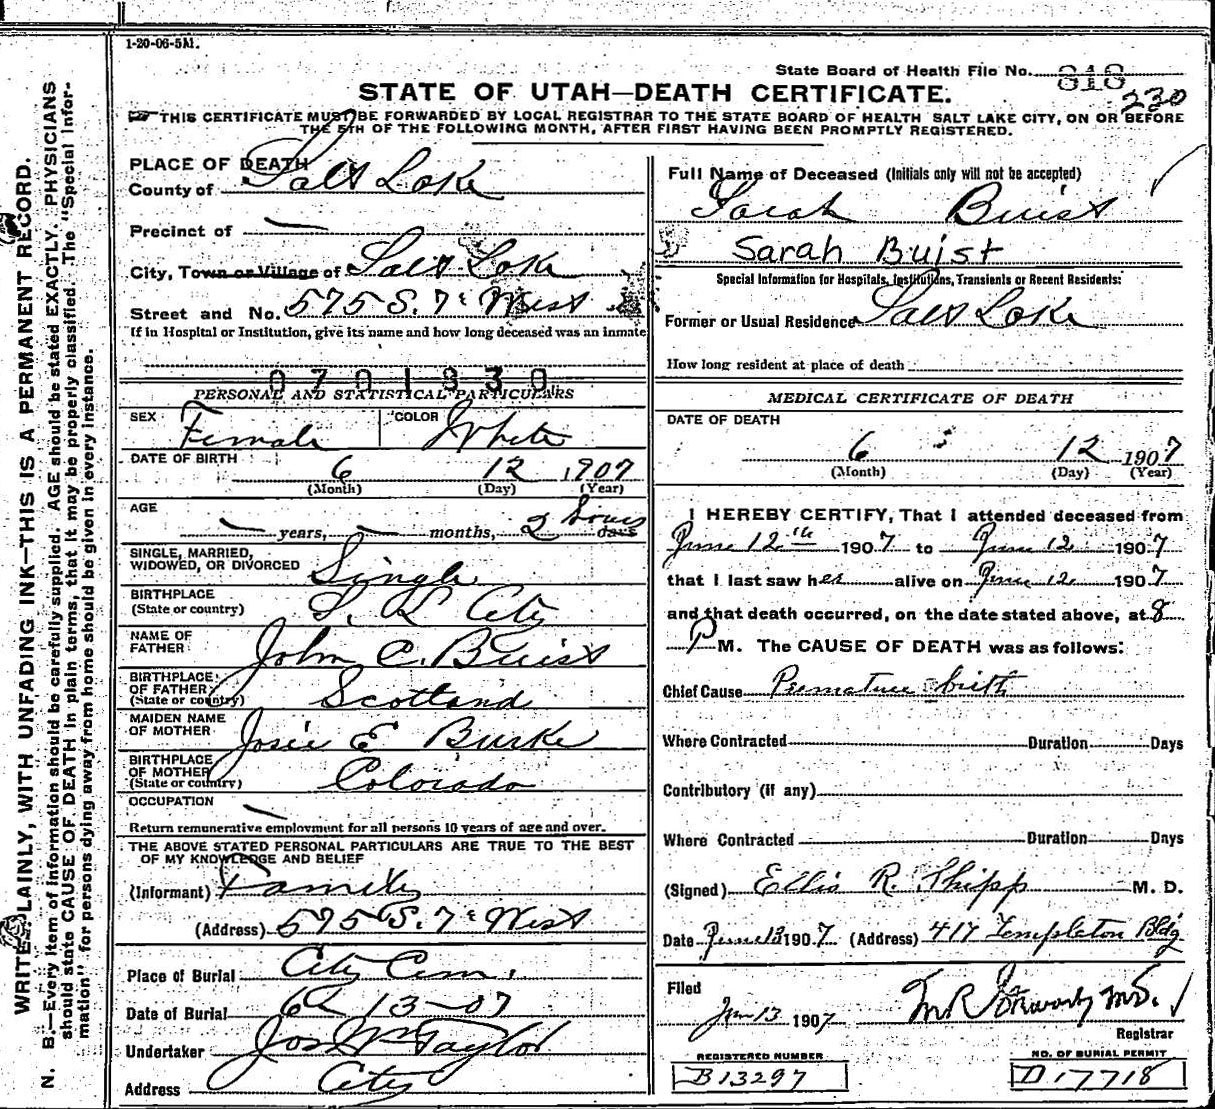 1-20-06-5M.
State Board of Health File No. 818
230
STATE OF UTAH—DEATH CERTIFICATE.
THIS CERTIFICATE MUST BE FORWARDED BY LOCAL REGISTRAR TO THE STATE BOARD OF HEALTH SALT LAKE CITY, ON OR BEFORE
THE 5TH OF THE FOLLOWING MONTH, AFTER FIRST HAVING BEEN PROMPTLY REGISTERED.
WRITE PLAINLY, WITH UNFADING INK—THIS IS A PERMANENT RECORD.
N. B.—Every item of information should be carefully supplied. AGE should be stated EXACTLY. PHYSICIANS
should state CAUSE OF DEATH in plain terms, that it may be properly classified. The "Special Infor-
mation" for persons dying away from home should be given in every instance.
PLACE OF DEATH
County of Salt Lake
Precinct of —
City, Town or Village of Salt Lake
Street and No. 575 S. 7th West
If in Hospital or Institution, give its name and how long deceased was an inmate
0701830
PERSONAL AND STATISTICAL PARTICULARS
SEX Female COLOR White
DATE OF BIRTH 6 12 1907
(Month) (Day) (Year)
AGE — years, — months, 2 hours days
SINGLE, MARRIED,
WIDOWED, OR DIVORCED Single
BIRTHPLACE
(State or country) S. L. City
NAME OF
FATHER John C. Buist
BIRTHPLACE
OF FATHER
(State or country) Scotland
MAIDEN NAME
OF MOTHER Josie E Burke
BIRTHPLACE
OF MOTHER
(State or country) Colorado
OCCUPATION —
Return remunerative employment for all persons 10 years of age and over.
THE ABOVE STATED PERSONAL PARTICULARS ARE TRUE TO THE BEST
OF MY KNOWLEDGE AND BELIEF
(Informant) Family
(Address) 575 S. 7th West
Place of Burial City Cem.
Date of Burial 6 13-07
Undertaker Jos Wm Taylor
Address City
Full Name of Deceased (Initials only will not be accepted)
Sarah Buist
Sarah Buist
Special Information for Hospitals, Institutions, Transients or Recent Residents:
Former or Usual Residence Salt Lake
How long resident at place of death
MEDICAL CERTIFICATE OF DEATH
DATE OF DEATH
6 12 1907
(Month) (Day) (Year)
I HEREBY CERTIFY, That I attended deceased from
June 12th 1907 to June 12 1907
that I last saw her alive on June 12 1907
and that death occurred, on the date stated above, at 8
P M. The CAUSE OF DEATH was as follows:
Chief Cause Premature birth
Where Contracted Duration Days
Contributory (if any)
Where Contracted Duration Days
(Signed) Ellis R. Shipp M. D.
Date June 13 1907 (Address) 417 Templeton Bldg
Filed
Jun 13 1907 M.D.
Registrar
REGISTERED NUMBER
B13297
NO. OF BURIAL PERMIT
D17718